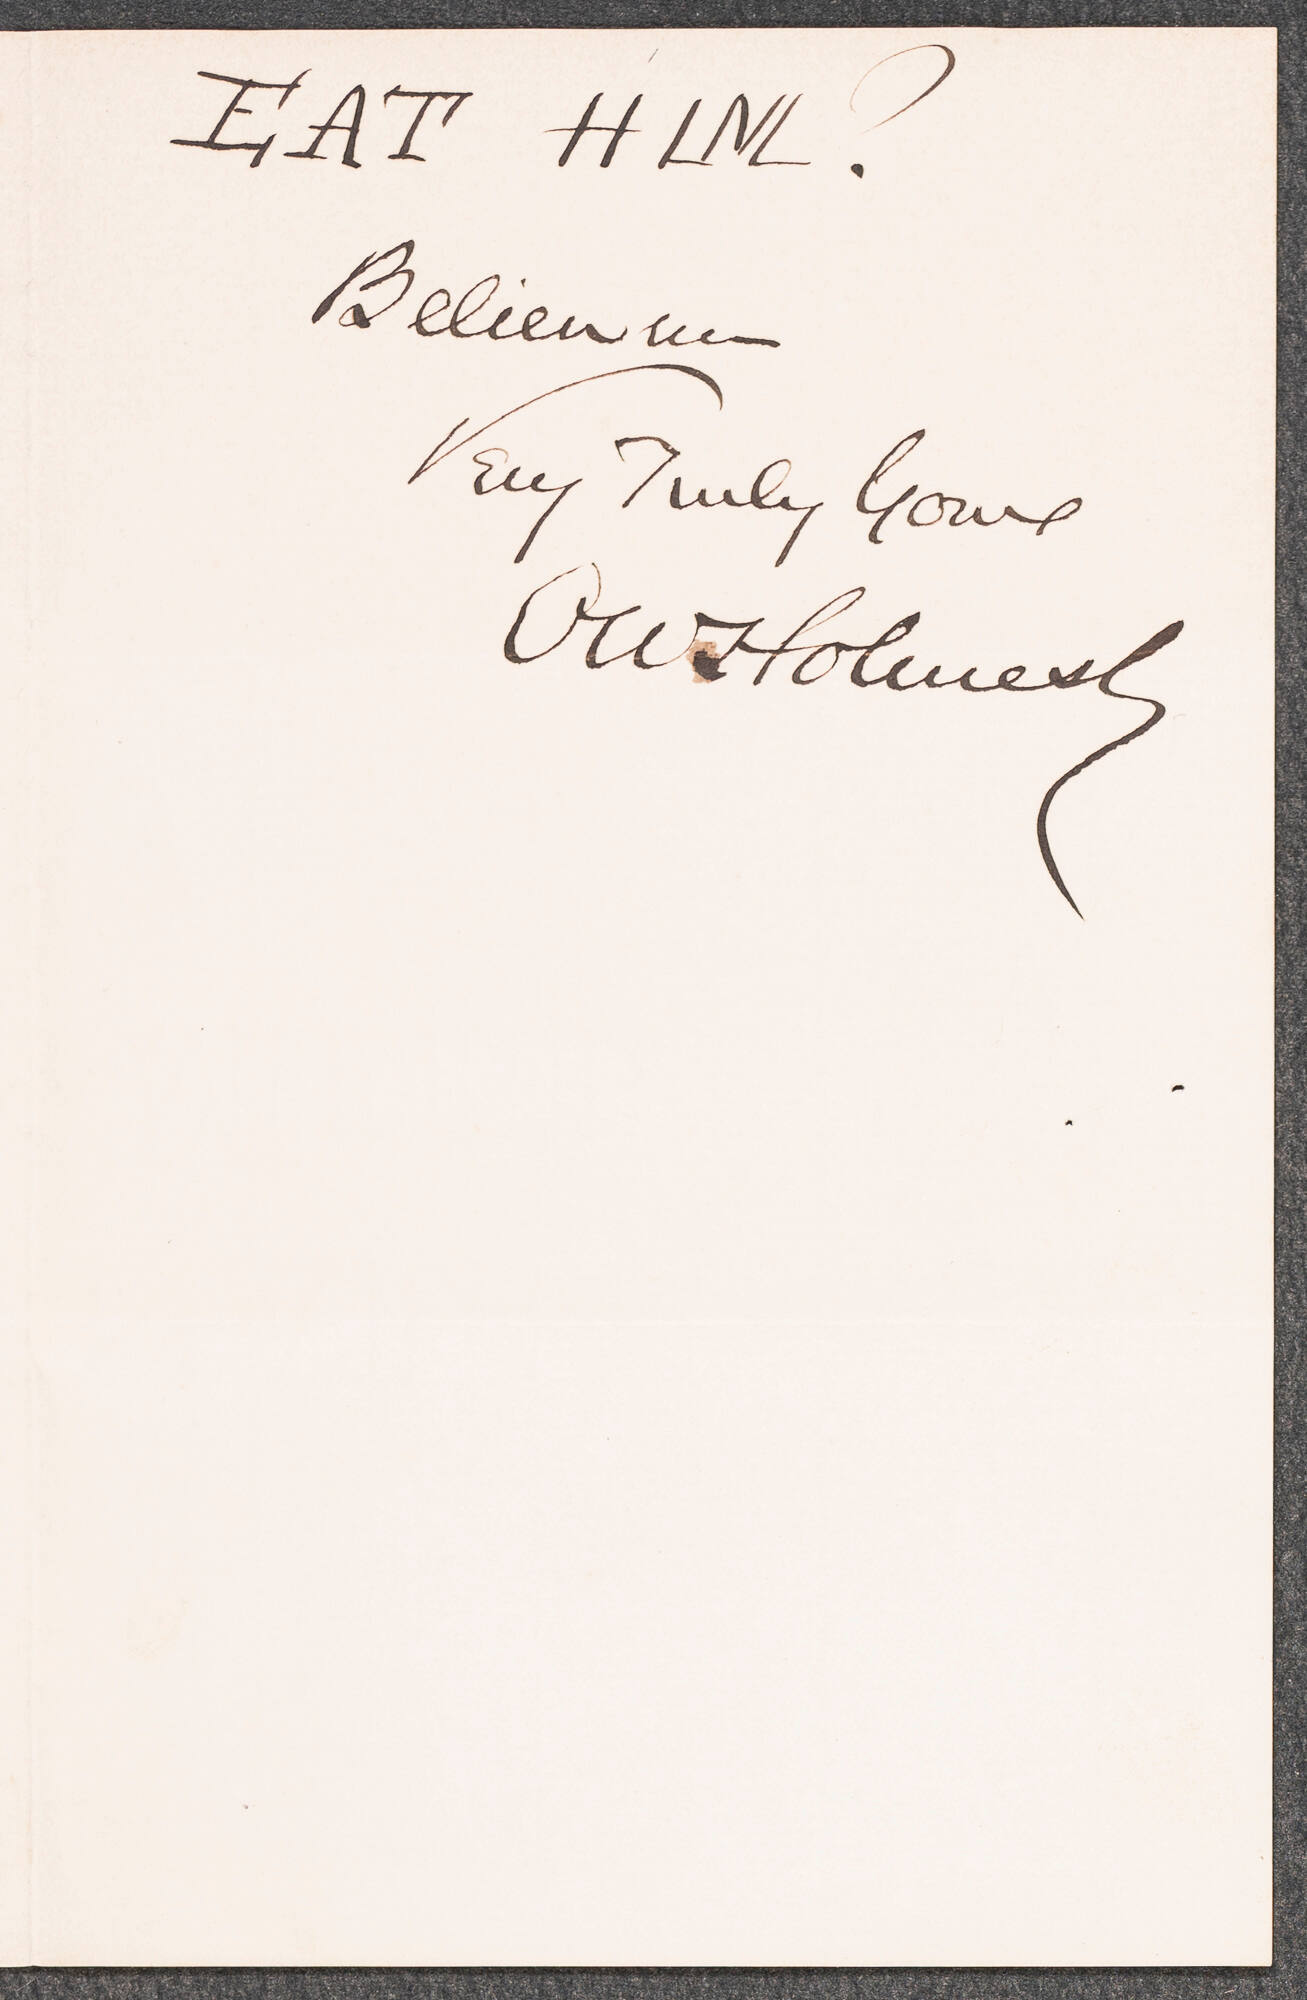 EAT HIM?
Believe me
Very Truly Yours
OW Holmes